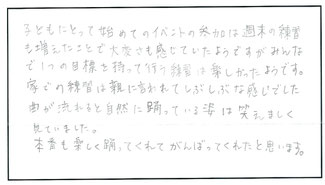 子どもにとって始めてのイベントの参加は週末の練習
も増えたことで大変さも感じていたようですがみんな
で1つの目標を持って行う練習は楽しかったようです。
家での練習は親に言われてしぶしぶな感じでした
曲が流れると自然に踊っている姿は笑えましく
見ていました。
本番も楽しく踊ってくれてがんばってくれたと思います。